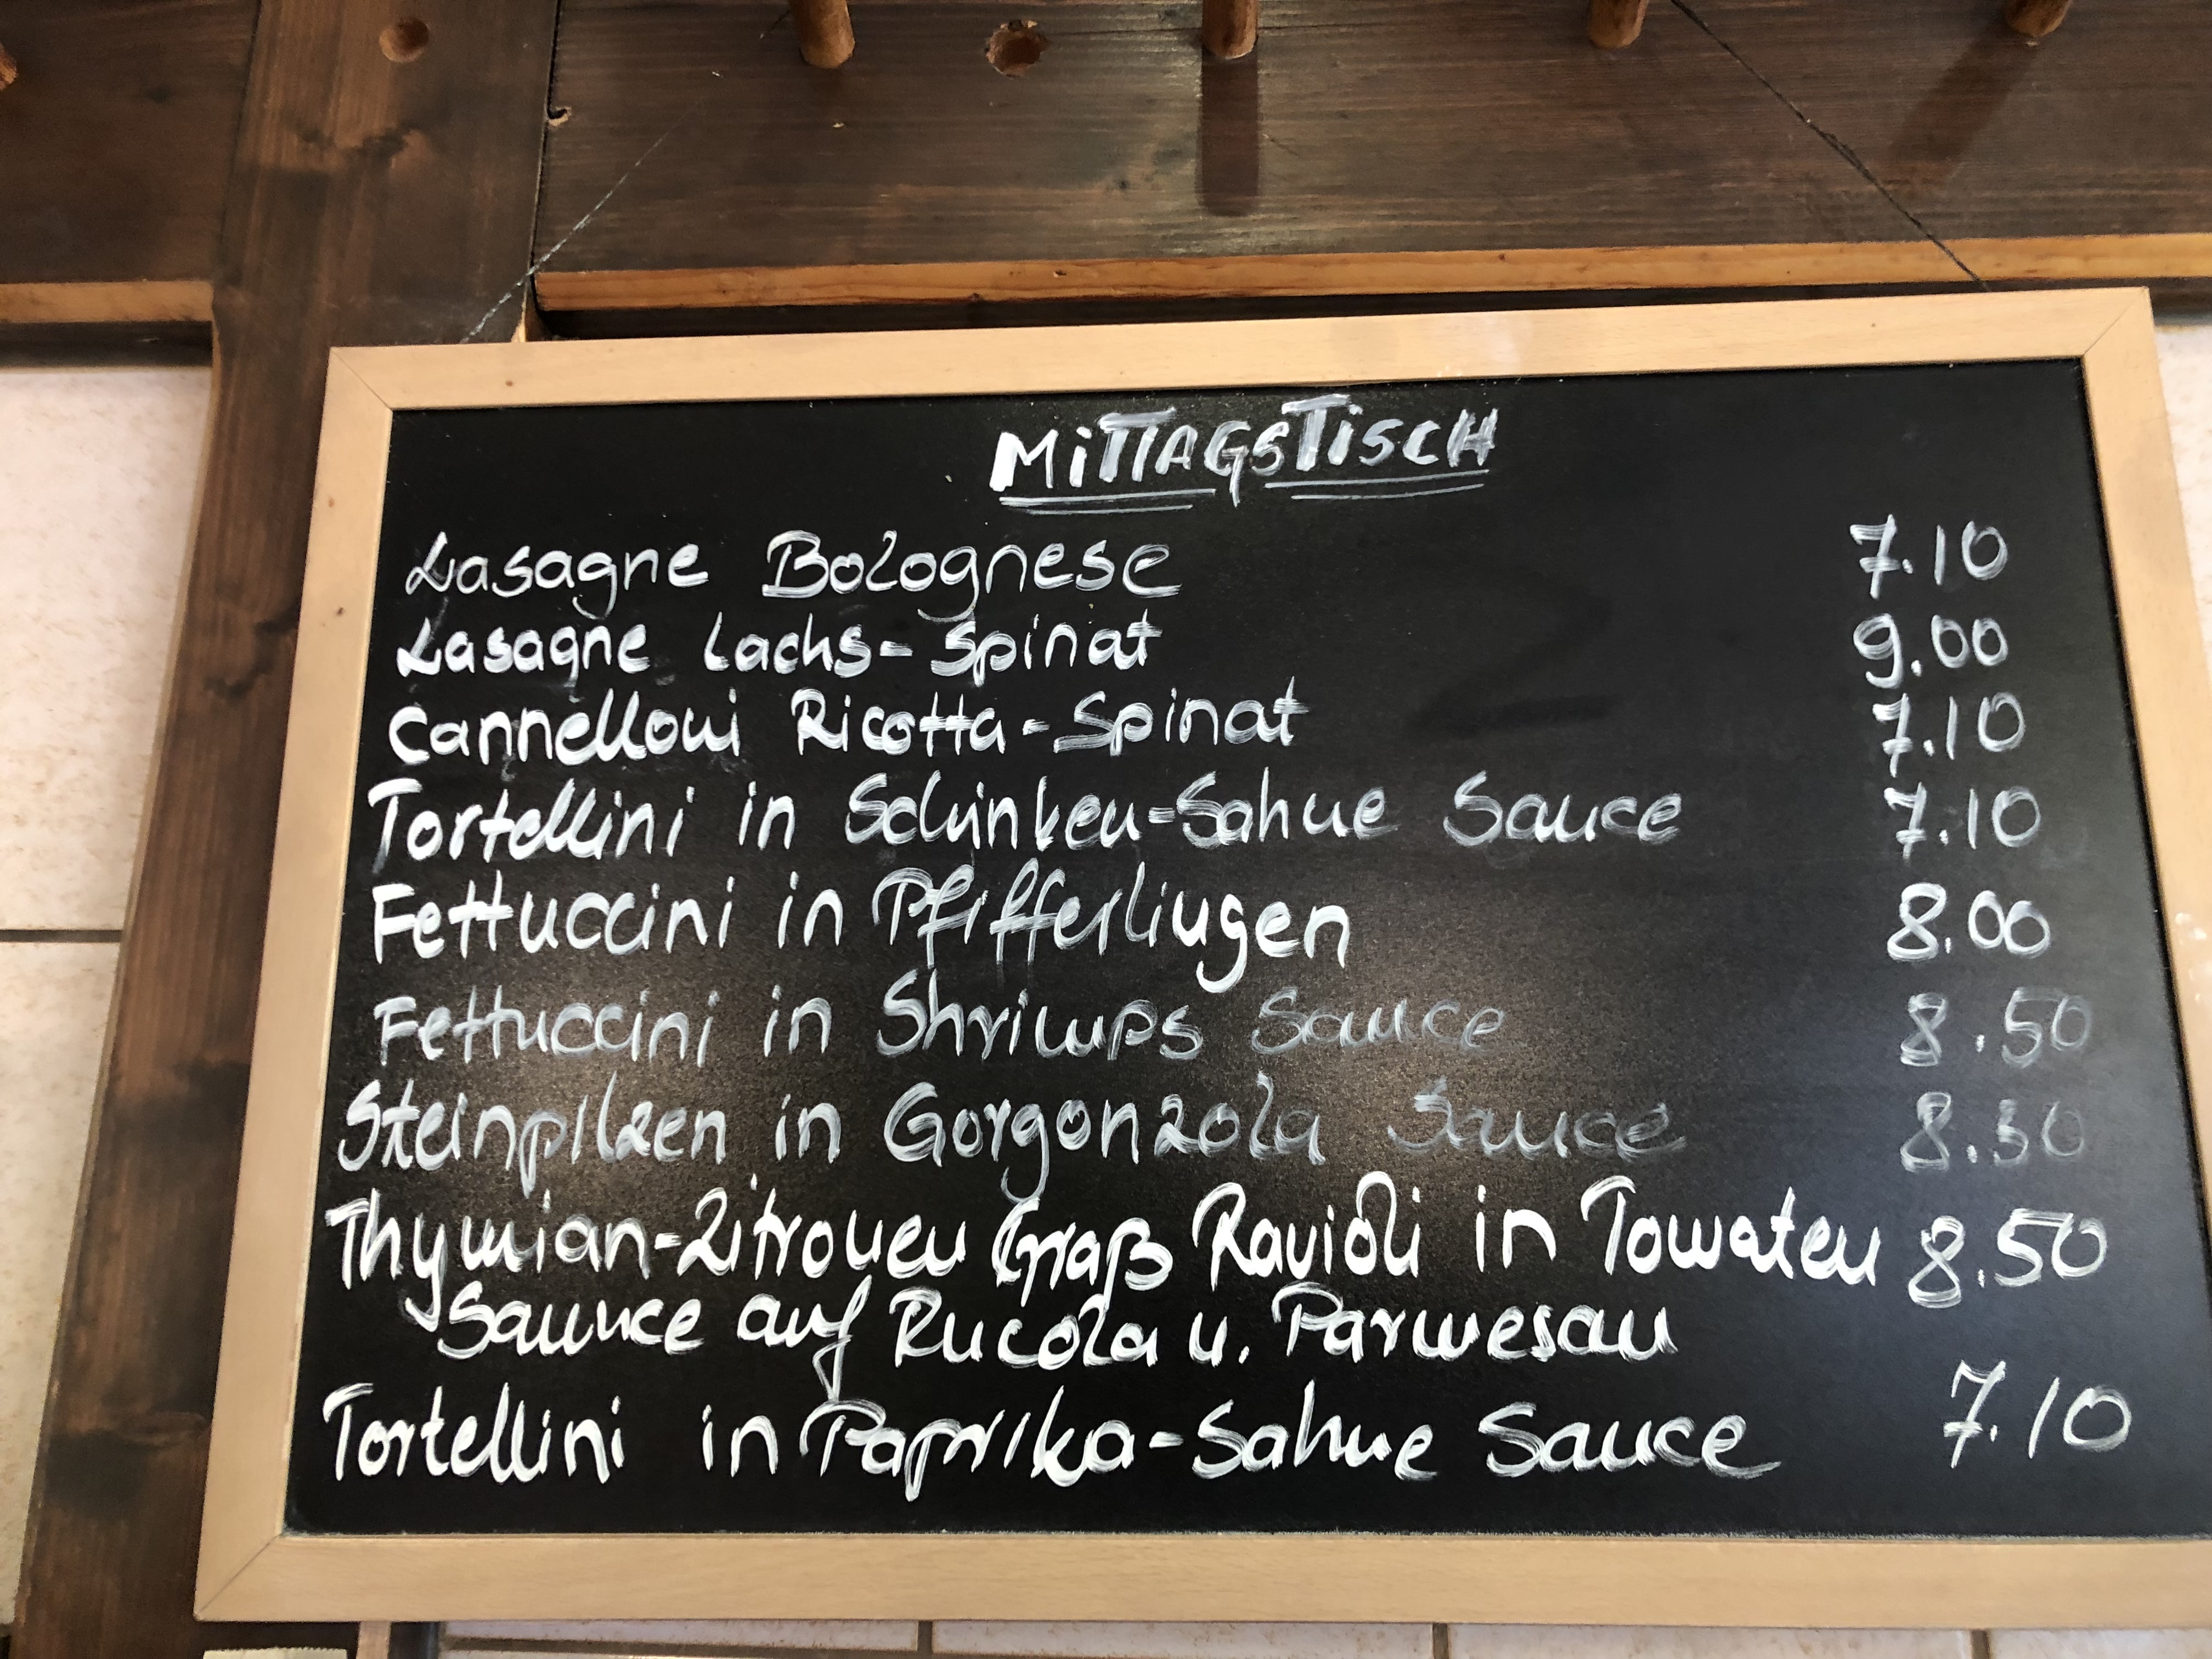 MiTTAGSTiSCH
Lasagne Bolognese 7.10
Lasagne Lachs-Spinat 9.00
Cannelloni Ricotta-Spinat 7.10
Tortellini in Schinken-Sahne Sauce 7.10
Fettuccini in Pfifferlingen 8.00
Fettuccini in Shrimps Sauce 8.50
Steinpilzen in Gorgonzola Sauce 8.50
Thymian-Zitronen Graß Ravioli in Tomaten 8.50
Sauuce auf Rucola u. Parmesan
Tortellini in Paprika-Sahne Sauce 7.10